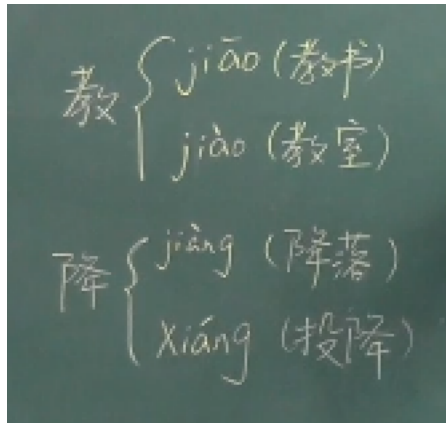 教 { jiāo (教书)
jiào (教室)
降 { jiàng (降落)
xiáng (投降)